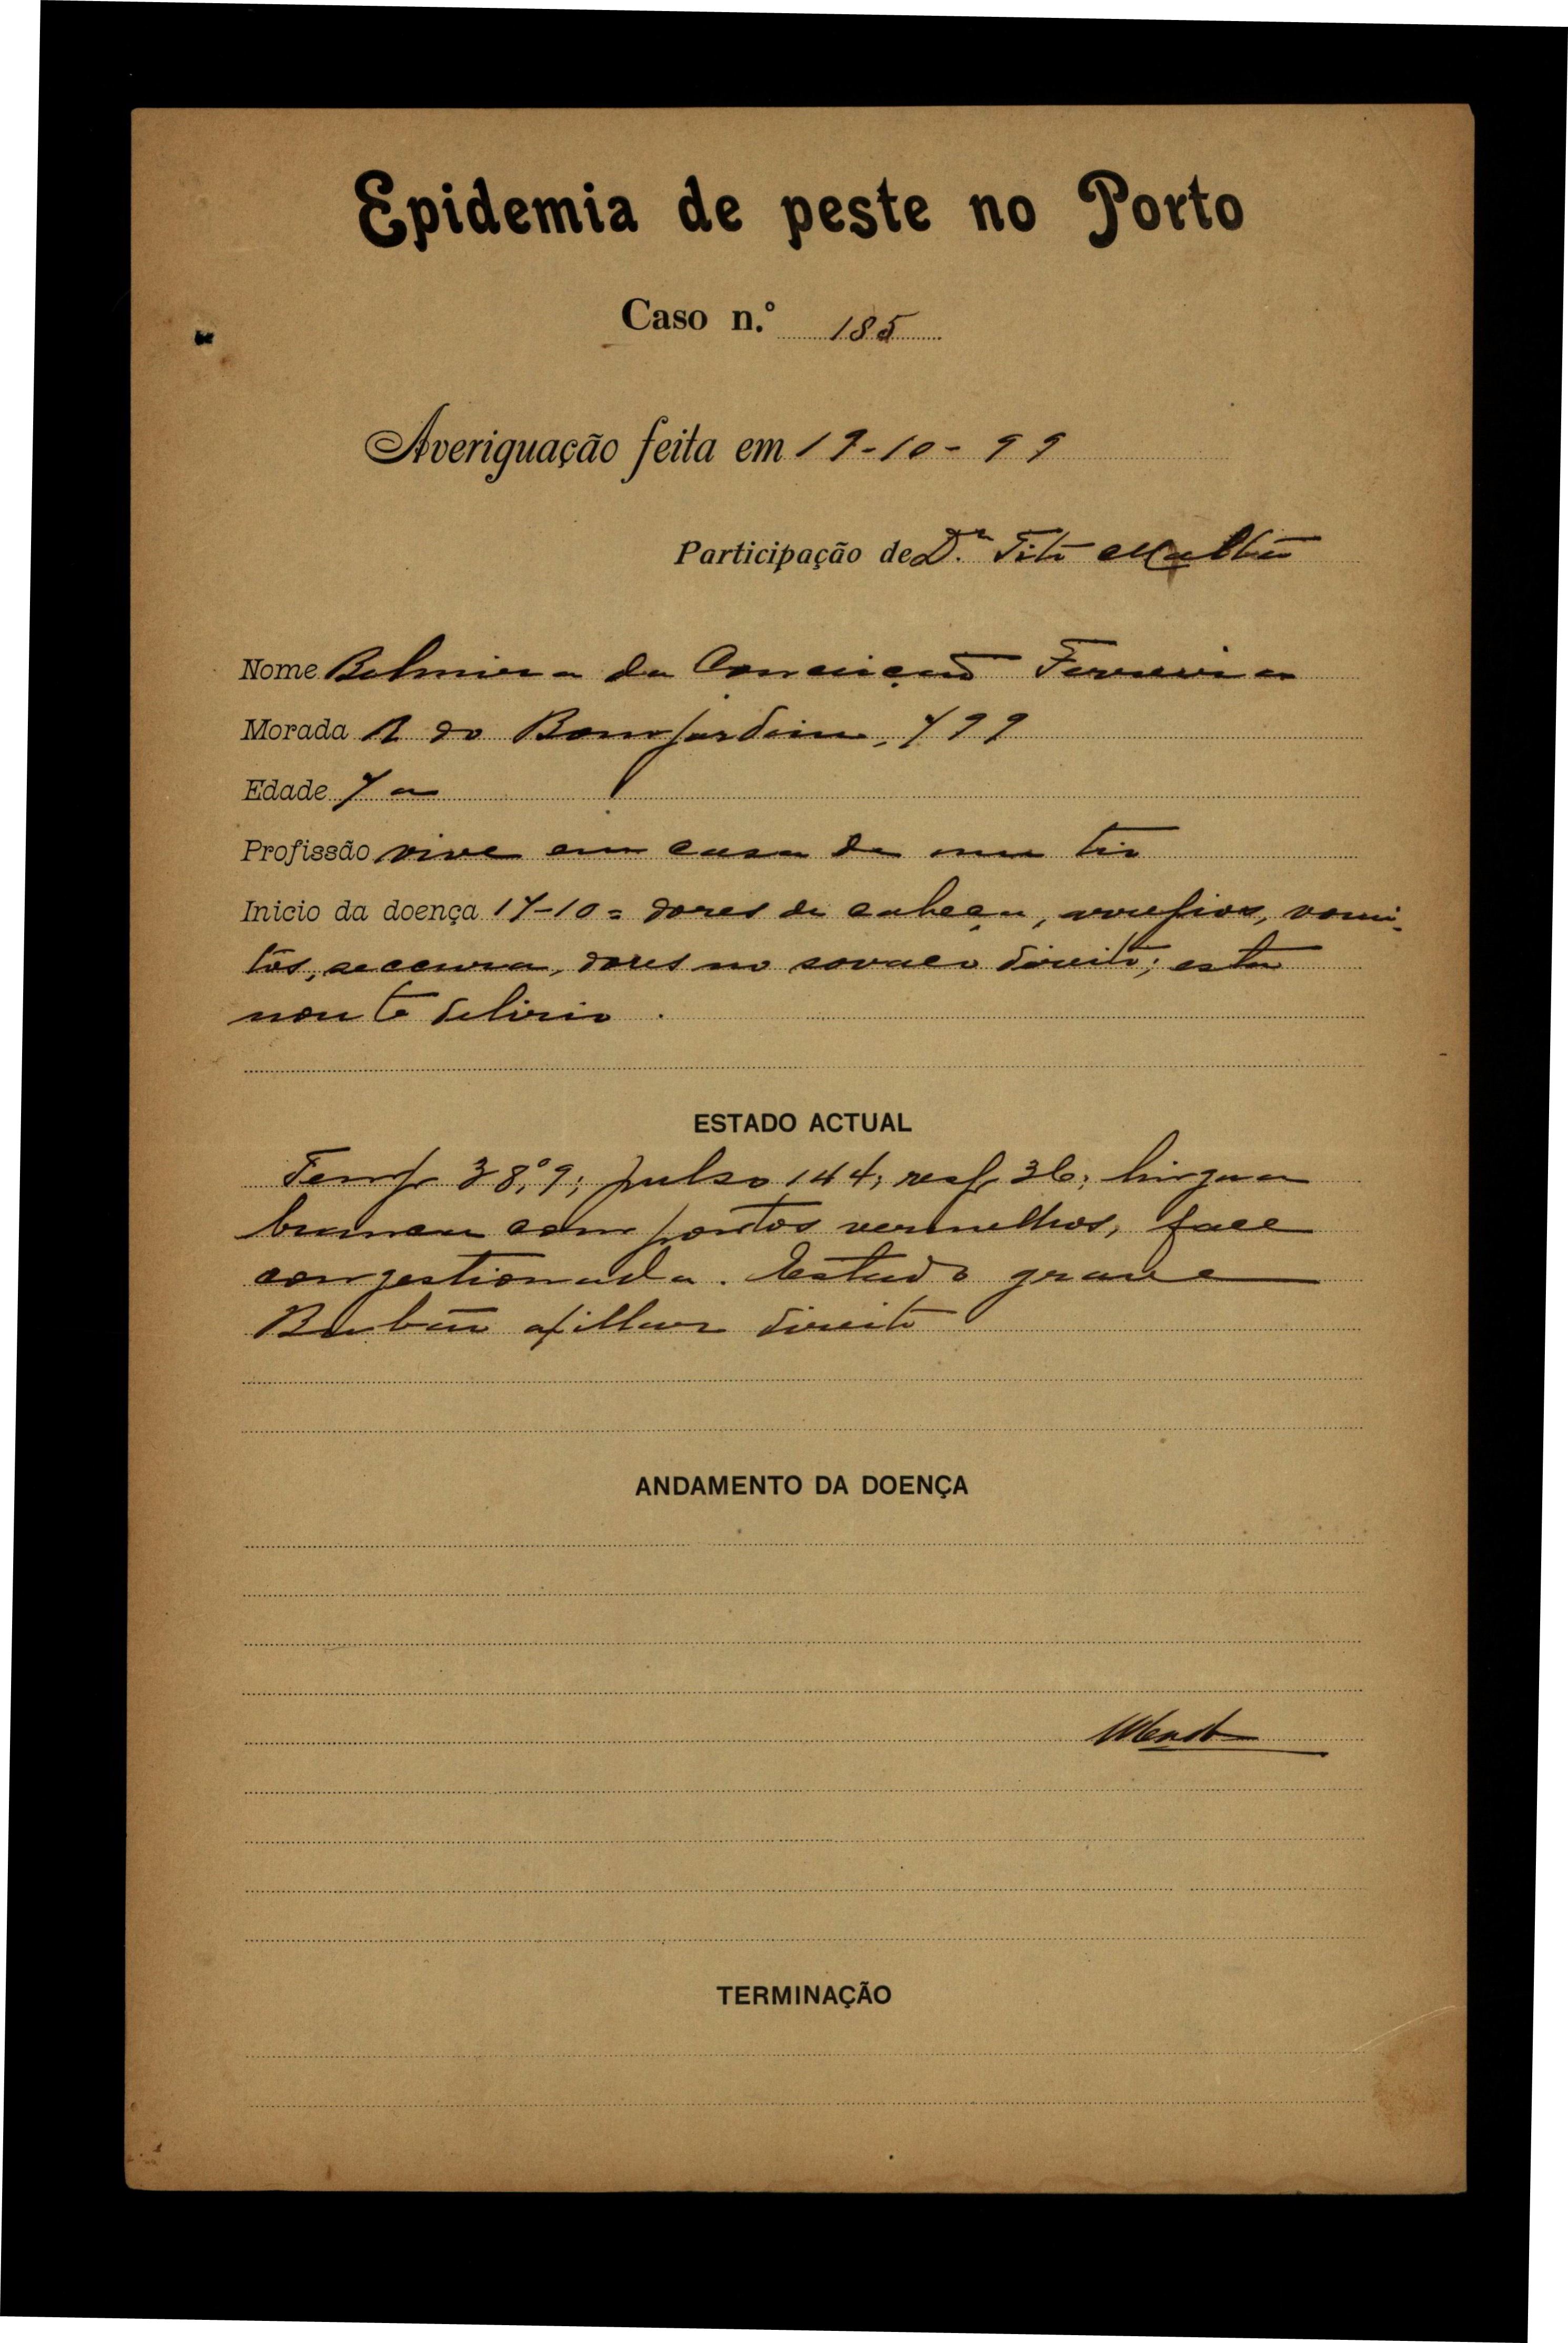 Epidemia de peste no Porto
Caso n.º 185
Averiguação feita em 19-10-99
Participação de D.r Tito Malta
Nome Belmira da Conceição Ferreira
Morada R do Bomjardim, 799
Edade 7 a
Profissão vive em casa da um tio
Inicio da doença 17-10 = dores de cabeça, arrepios, vomi-
tos, seccura, dores no sovaco direito; esta
noute delirio.
ESTADO ACTUAL
Temp 38,º9; pulso 144; resp 36; lingua
branca com pontos vermelhos, face
congestionada. Estado grave
Bubão axillar direito
ANDAMENTO DA DOENÇA
TERMINAÇÃO